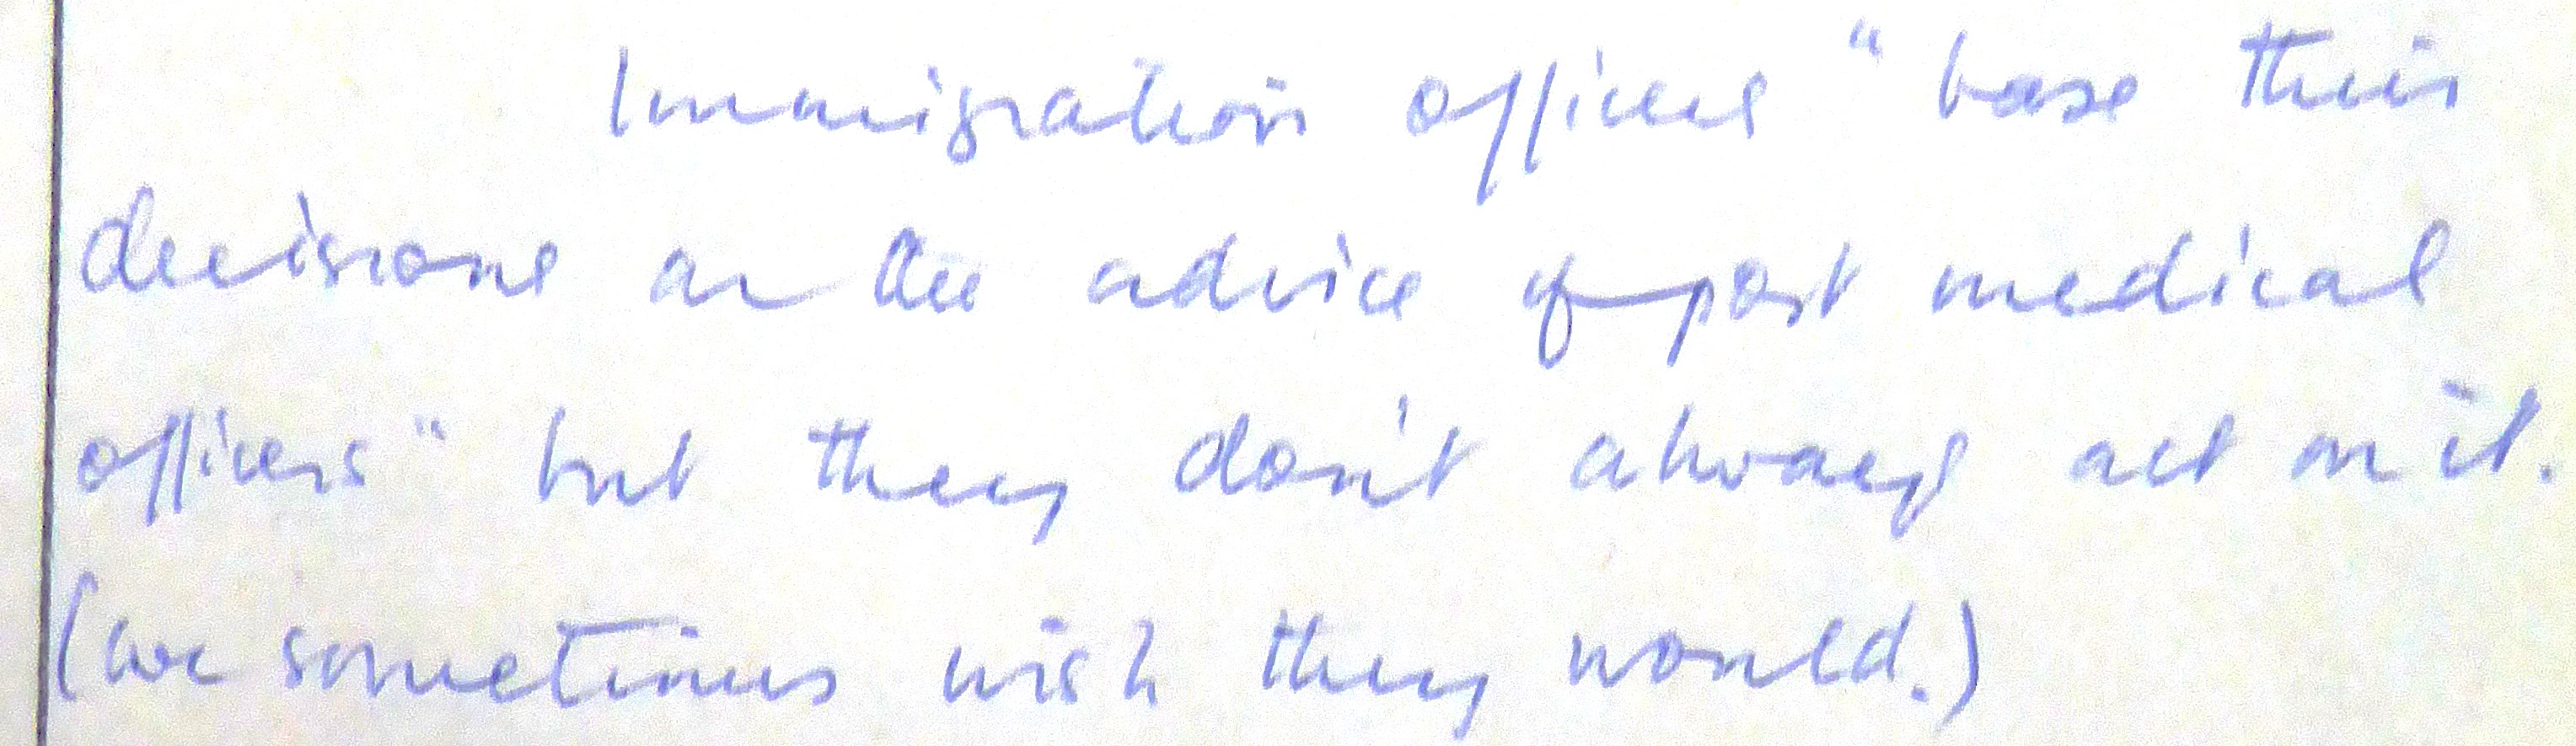 Immigration officers "base their
decisions on the advice of port medical
officers" but they don't always act on it.
(we sometimes wish they would.)